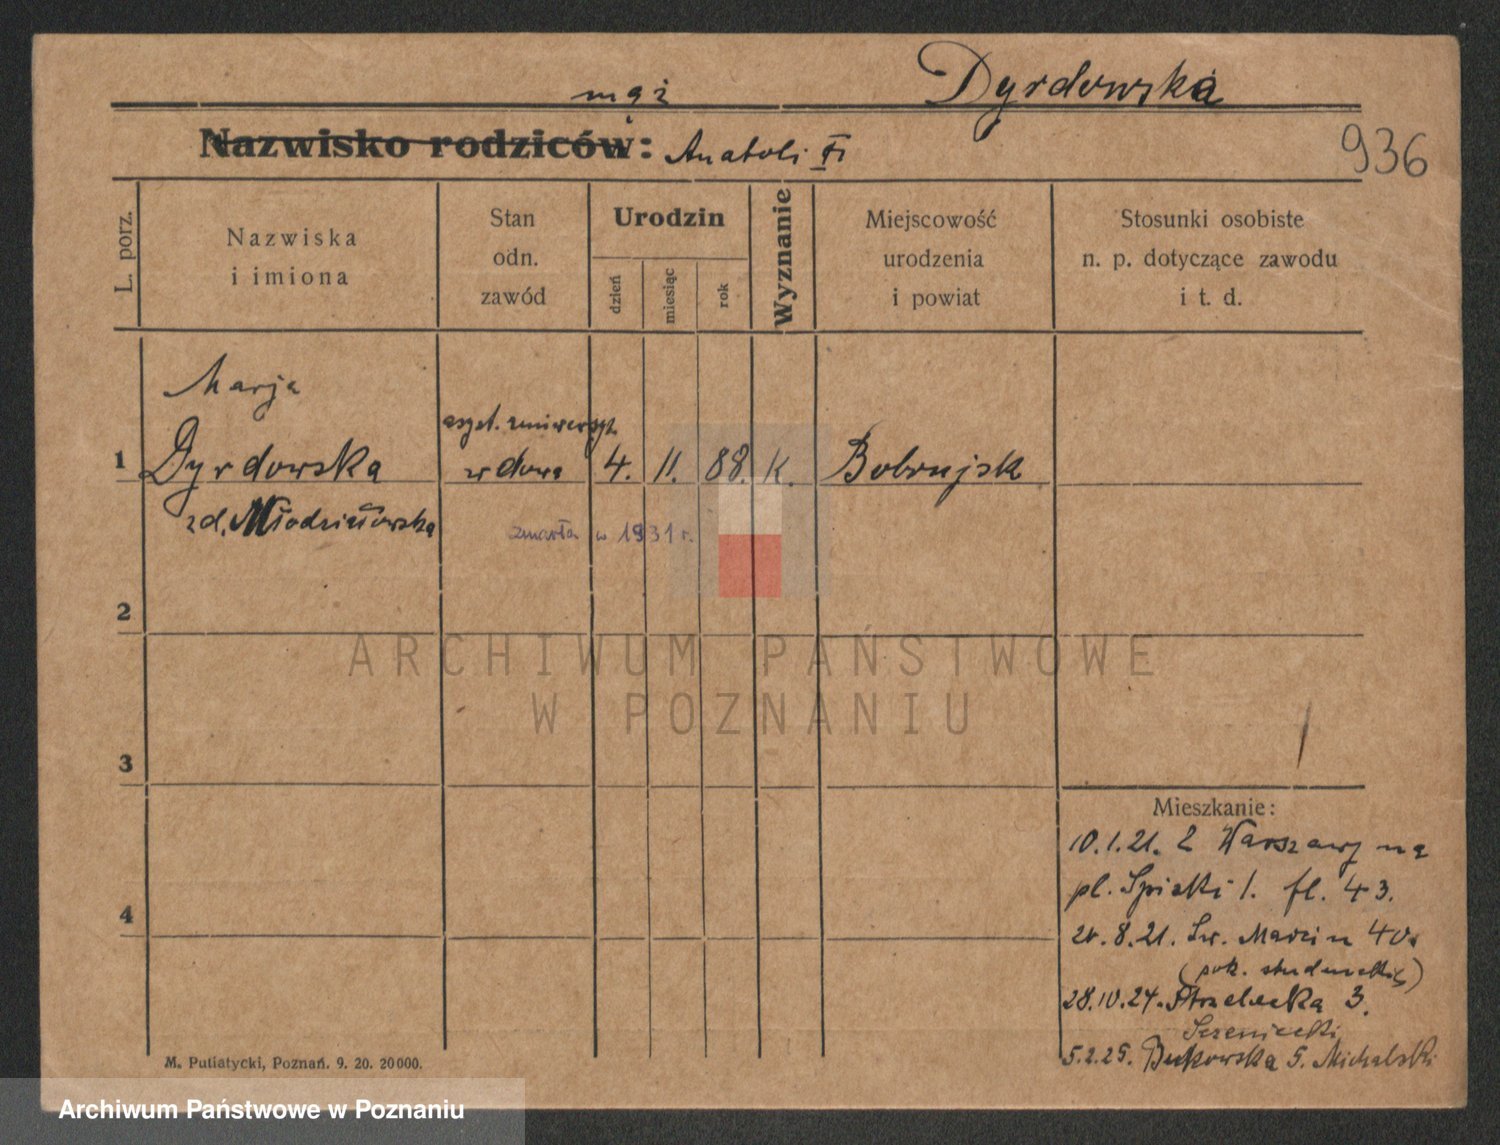 Dyrdowska
mąż
Nazwisko rodziców: Anatoli
936
L. porz.
Nazwiska
i imiona
Stan
odn.
zawód
Urodzin
dzień
miesiąc
rok
Wyznanie
Miejscowość
urodzenia
i powiat
Stosunki osobiste
n. p. dotyczące zawodu
i t. d.
Marja
1 Dyrdowska
wdowa 4. 11. 88. K. Bobrujsk
zd.
zmarła w 1931 r.
2
3
4
ARCHIWUM PAŃSTWOWE
W POZNANIU
Mieszkanie:
10.1.21. Z Warszawy na
pl. 1. fl. 43.
8.21. Św. Marcin 40.
28.10.24. Strzelecka 3.
5.2.25. Bukowska 5. Michalski
M. Putiatycki, Poznań. 9. 20. 20000.
Archiwum Państwowe w Poznaniu